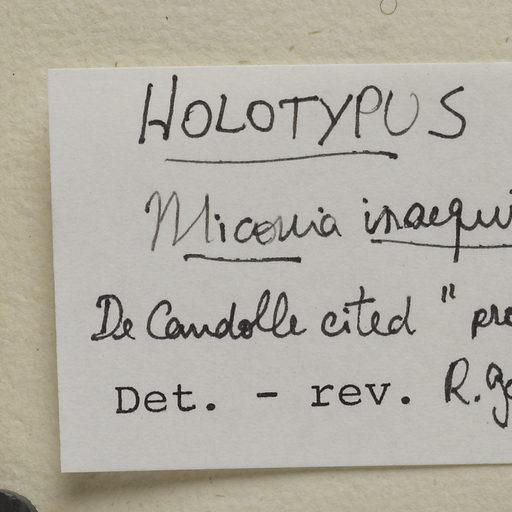 HOLOTYPUS
Miconia inaequi
De Candolle cited " pro
Det. - rev. R. Go